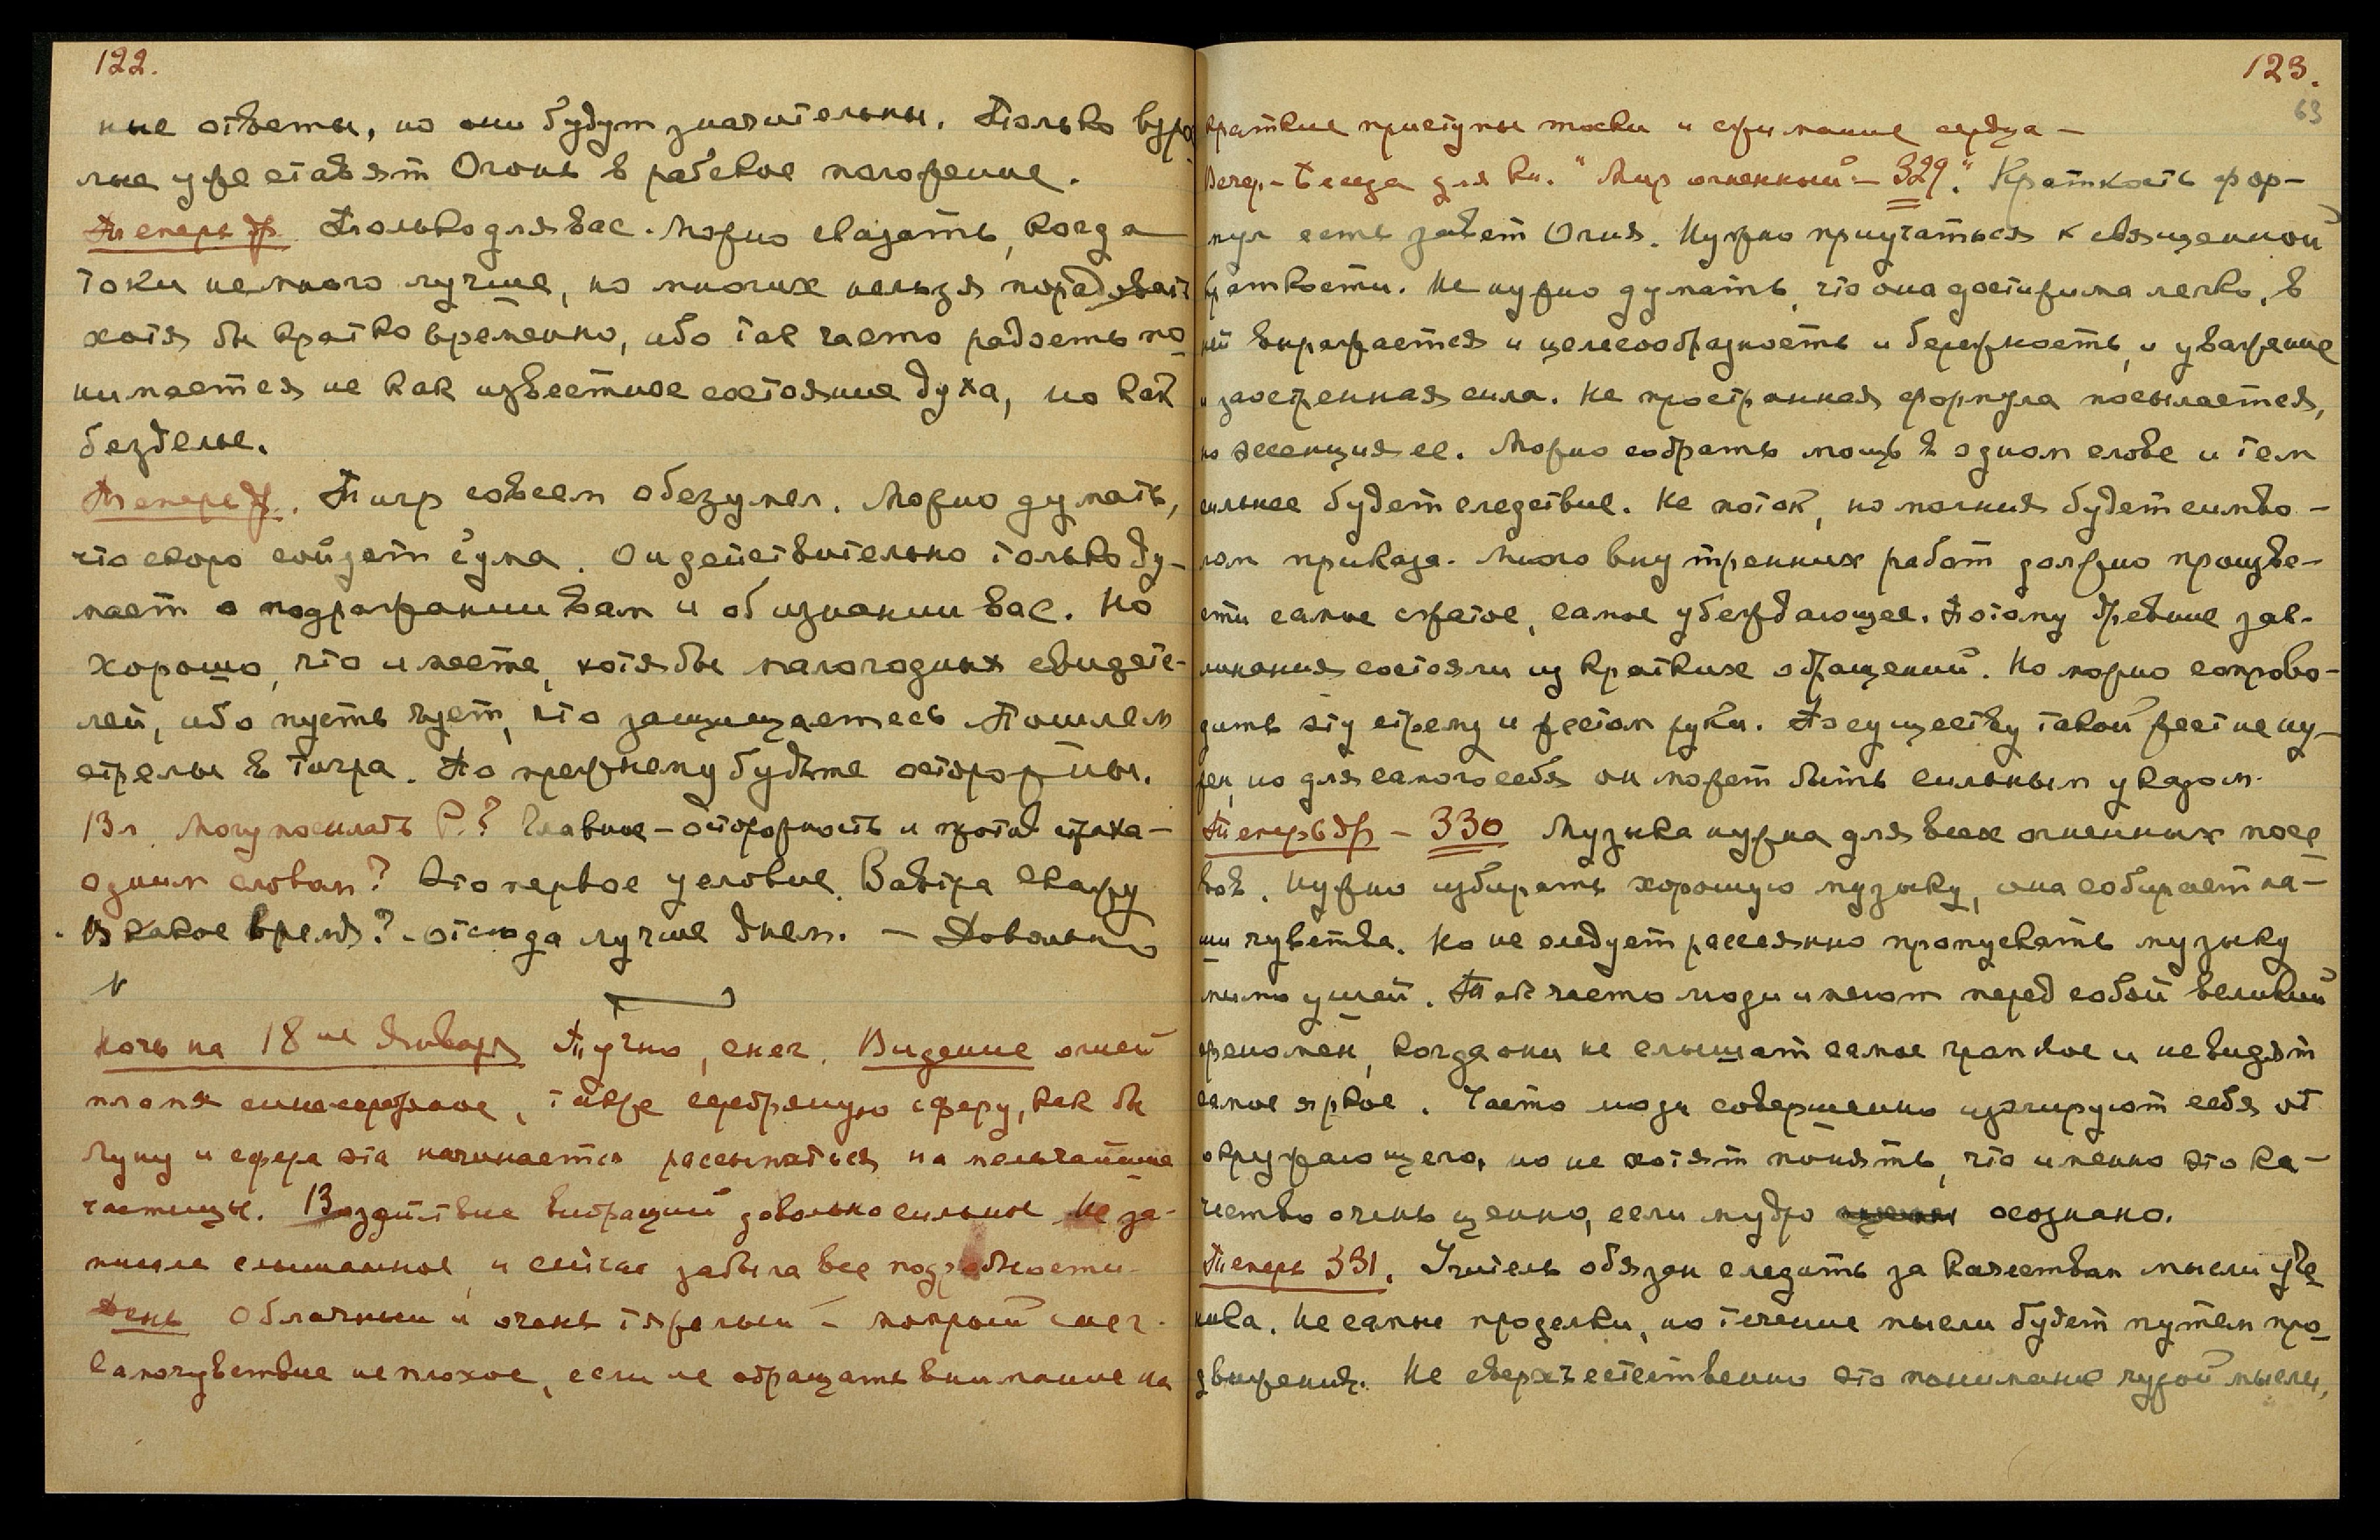 122.
ные ответы, но они будут значительны. Только
лые уже ставят Огонь в рабское положение.
Теперь др. Только для вас. Можно сказать, когда
токи немного лучше, но многих нельзя порадовать
хотя бы кратковременно, ибо так часто радость по
нимается не как известное состояние духа, но как
безделье.
Теперь др. Тигр совсем обезумел. Можно думать,
что скоро сойдет с ума. Он действительно только ду-
мает о подражании вам и об изгнании вас. Но
хорошо, что имеете, хотя бы малогодных свидете-
лей, ибо пусть чует, что защищаетесь. Пошлем
стрелы в тигра. По прежнему будьте осторожны.
Вл. Могу посылать Р.? Главное – осторожность и
одним словом? Это первое условие. Завтра скажу
В какое время? – отсюда лучше днем. – Довольно
Ночь на 18ое Января Тучно, снег. Видение огней
пламя сине-серебряное, также серебряную сферу, как бы
Луну и сфера эта начинается рассыпаться на мельчайшие
частицы. Воздействие вибраций довольно сильное Не за-
писала слышанное, и сейчас забыла все подробности.
День Облачный и очень тяжелый – мокрый снег.
Самочувствие неплохое, если не обращать внимание на
123.
63
краткие приступы тоски и сжимание сердца –
Вечер – Беседа для кн. "Мир огненный – 329." Краткость фор-
мул есть завет Огня. Нужно приучаться к священной
краткости. Не нужно думать, что она достижима легко, в
ней выражается и целесообразность и бережность, и уважение
и заостренная сила. Не пространная формула посылается,
но эссенция ее. Можно собрать мощь в одном слове и тем
сильнее будет следствие. Не поток, но молния будет симво-
лом приказа. Много внутренних работ должно произве-
сти самое сжатое, самое убеждающее. Потому древние зак-
линания состояли из кратких обращений. Но можно сопрово-
дить эту стрелу и жестом руки. По существу такой жест не ну-
жен, но для самого себя он может быть сильным указом.
Теперь др – 330 Музыка нужна для всех огненных посе
вов. Нужно избирать хорошую музыку, она собирает на-
ши чувства. Но не следует рассеянно пропускать музыку
мимо ушей. Так часто люди имеют перед собой великий
феномен, когда они не слышат самое громкое и не видят
самое яркое. Часто люди совершенно изолируют себя от
окружающего, но не хотят понять, что именно это ка-
чество очень ценно, если мудро осознано.
Теперь 331. Учитель обязан следить за качеством мысли уче
ника. Не самые проделки, но течение мысли будет путем про
движения. Не сверхъестественно это понимание чужой мысли,